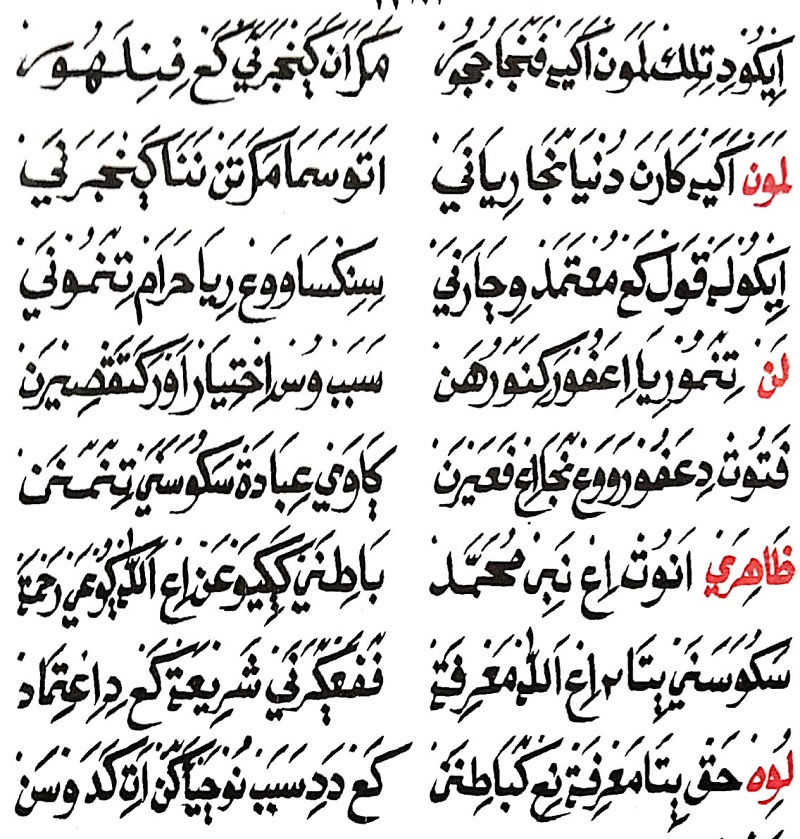 اِيْكُوْدِ تِلِكْ لَمُونْ اَكَيَهْ فَنْجَا جُجُوْرْ مَرَاَنْ كَڠْجَرَنَيْ كَڠْ فِنِلَهُوْرْ
لَمُونْ اَكَيَهْ كَارَنَ دُنْيَا نْجَا رِيَانَيْ اَتَوَسَمَا مَرَتَنْ نَنَا كَڠْجَرَنَيْ
اِيْكُولَهْ قَوْلْ كَڠْ مُعْتَمَدْ وِچَارَنَيْ سِڠِكْسَا وَوْڠْ رِيَا حَرَامْ تِنَمُوْنَيْ
لَنْ تِنَمُوْ رِيَا اِڠْفُوْرَ كِنَوْرُهَنْ سَبَبْ وُسْ اِخْتِيَارْ اَوْرَ كَتَقْصِيْرَنْ
فَتُوْتْ دِڠَفُوْرَ وَوْڠْ نْجَا اِڠْ فَڠَيْرَنْ كَاوَيْ عِبَادَةْ سَكُوَسَنَيْ تِنَمْنَنْ
ظَاهِرَيْ اَنُوْتْ اِڠْ نَبِيْ مُحَمَّدْ بَاطِنَيْ كَكَيَوْڠَنْ اِڠْ اَللّٰهْ كُوْڠَيْ رَحْمَةْ
سَكُوَسَنَيْ پِتَا٢ اِڠْ اَللّٰهْ مَعْرِفَةْ فَڠَكَرَنَيْ شَرِيْعَةْ كَڠْ دِاِعْتِمَادْ
لَوِهْ حَقْ پِتَا مَعْرِفَةْ نِڠْ كَبَاطِنَنْ كَڠْ دَدِ سَبَبْ نُوْجَيَأَكَنْ اَتِ كَدَوْسَنْ